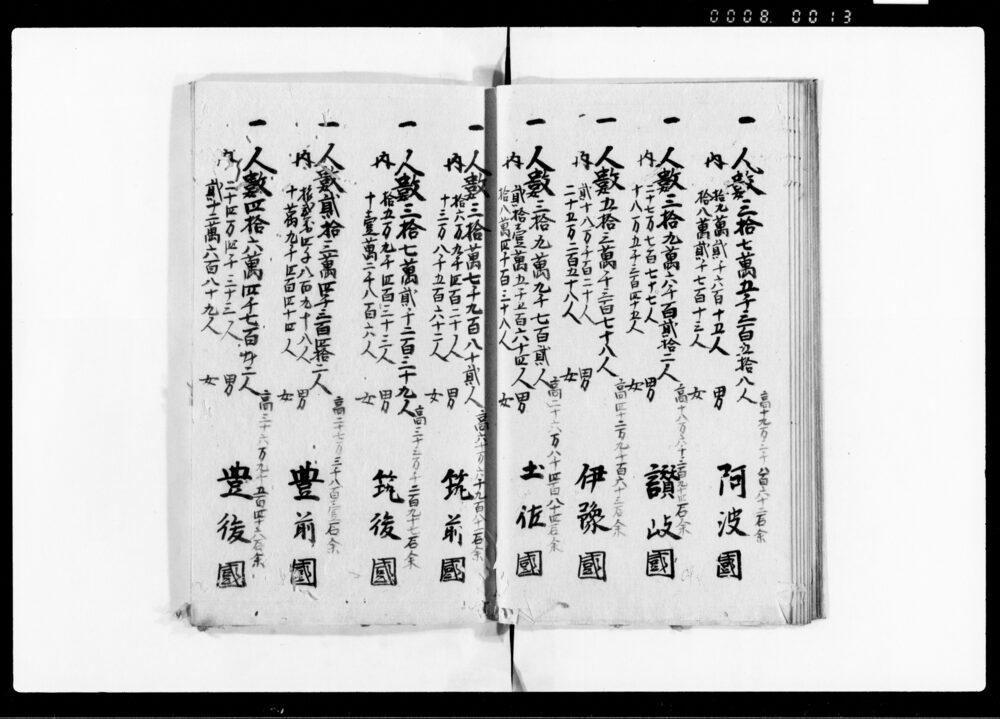 0008. 0013
一 人數三拾七萬五千三百五拾八人
内 拾九萬貳千六百十五人 男
拾八萬貳千七百十三人 女
高十九万三千八百六十二石余
阿波國
一 人數三拾九萬六千百貳拾二人
内 二十七万七百七十七人 男
十八万五千三百四十五人 女
高十八万六千三百九十四石余
讃岐國
一 人數五拾三萬千三百七十八人
内 貳十八万千百二十人 男
二十五万二百五十八人 女
高四十二万九千百六十三石余
伊豫國
一 人數三拾九萬九千七百貳人
内 貳拾壹萬五千五百六十四人 男
拾八萬四千百三十八人 女
高二十六万八千四百八十四石余
土佐國
一 人數三拾萬七千九百八十貳人
内 拾六万九千四百二十人 男
十三万八千五百六十二人 女
高六十万六千九百八十一石余
筑前國
一 人數三拾七萬貳千二百三十九人
内 拾五万九千四百三十三人 男
十壹萬二千八百六人 女
高三十三万千二百九十七石余
筑後國
一 人數貳拾三萬四千三百四拾二人
内 拾貳萬四千八百九十八人 男
十萬九千四百四十四人 女
高二十七万三千八百壹石余
豊前國
一 人數四拾六萬四千七百廿二人
内 二十四万四千三十三人 男
貳十二萬六百八十九人 女
高三十六万九千五百四十六石余
豊後國